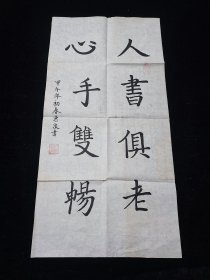 人書俱老
心手雙暢
甲午年初春
書